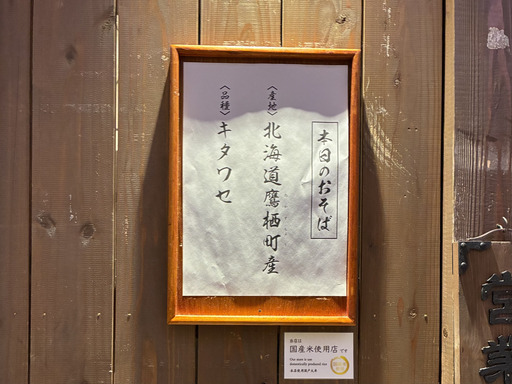 本日のおそば
〈産地〉北海道鷹栖町産
〈品種〉キタワセ
当店は
国産米使用店です
Our store is use
domestically produced rice
营業